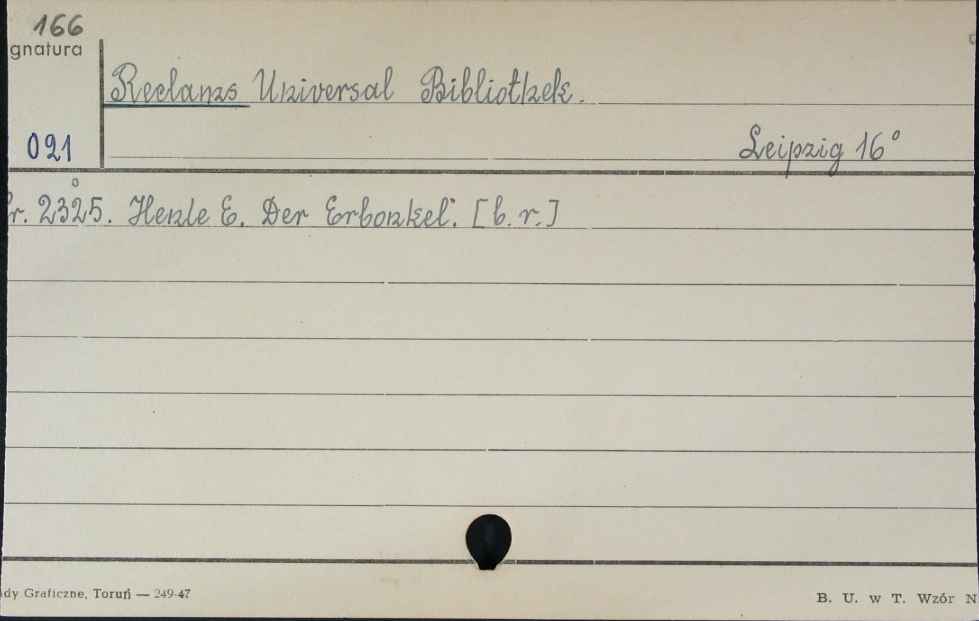 166
gnatura
Reclams Universal Bibliothek.
021
Leipzig 16°
r. 2325. Henle E. Der Erbonkel. [b. r.]
dy Graficzne, Toruń — 249-47
B. U. w T. Wzór N